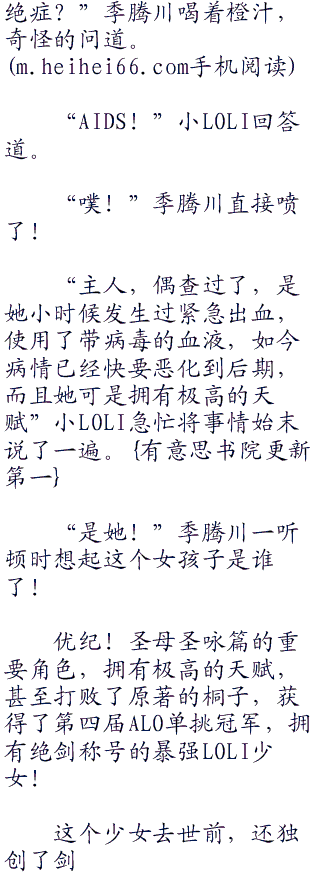 绝症？”季腾川喝着橙汁，
奇怪的问道。
(m.heihei66.com手机阅读)
“AIDS！”小LOLI回答
道。
“噗！”季腾川直接喷
了！
“主人，偶查过了，是
她小时候发生过紧急出血，
使用了带病毒的血液，如今
病情已经快要恶化到后期，
而且她可是拥有极高的天
赋”小LOLI急忙将事情始末
说了一遍。{有意思书院更新
第一}
“是她！”季腾川一听
顿时想起这个女孩子是谁
了！
优纪！圣母圣咏篇的重
要角色，拥有极高的天赋，
甚至打败了原著的桐子，获
得了第四届ALO单挑冠军，拥
有绝剑称号的暴强LOLI少
女！
这个少女去世前，还独
创了剑